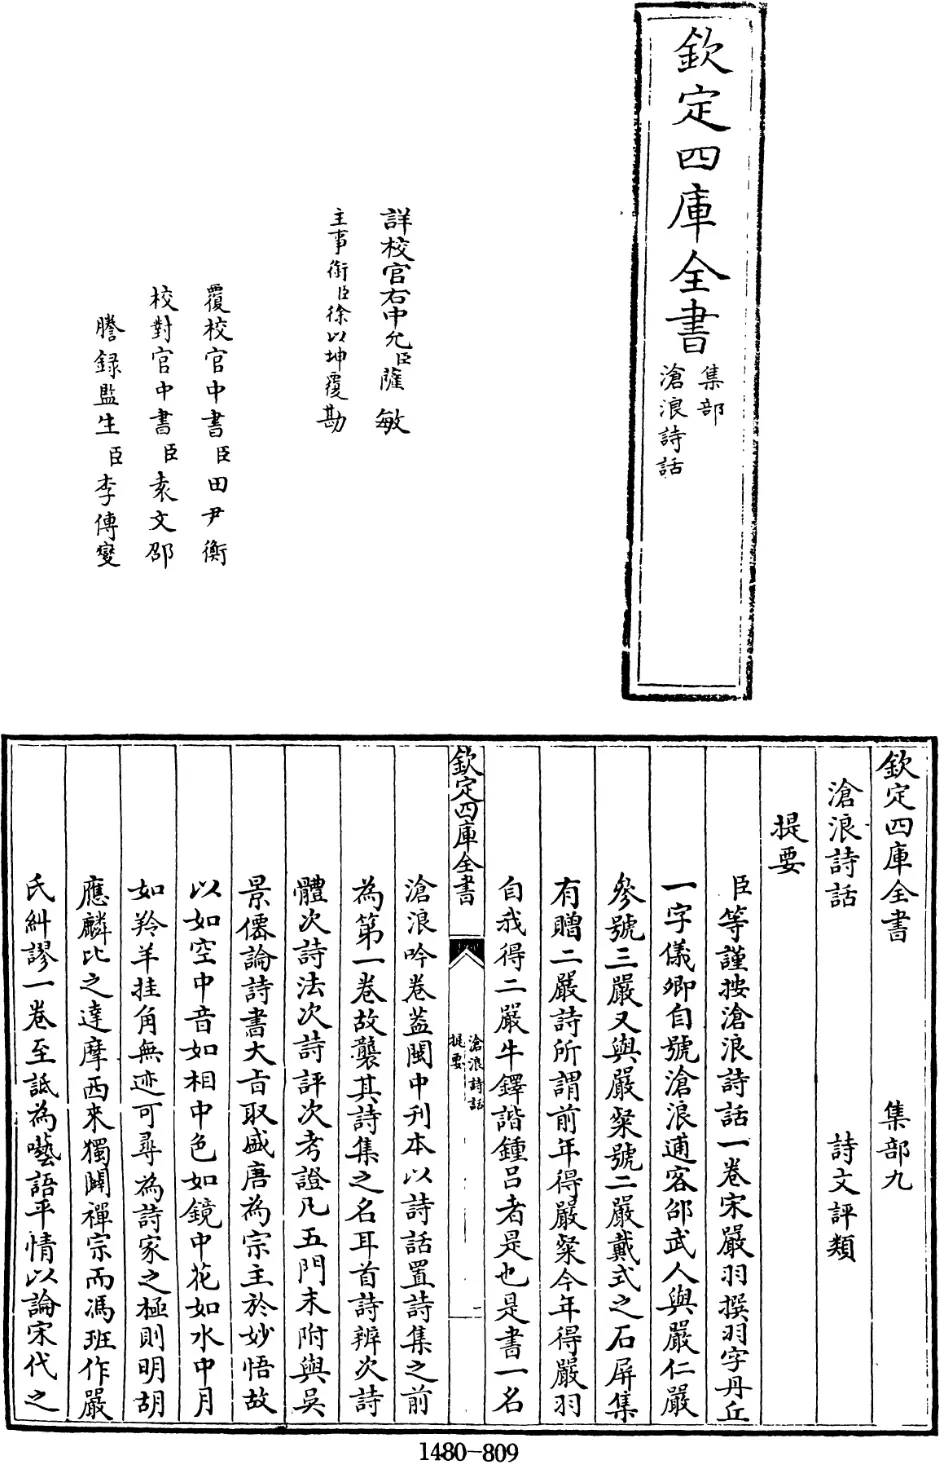 欽定四庫全書
集部
滄浪詩話
詳校官右中允臣薩敏
主事銜臣徐以坤覆勘
覆校官中書臣田尹衡
校對官中書臣袁文邵
謄錄監生臣李傳燮
欽定四庫全書
集部九
滄浪詩話
詩文評類
提要
臣等謹按滄浪詩話一卷宋嚴羽撰羽字丹丘
一字儀卿自號滄浪逋客邵武人與嚴仁嚴
參號三嚴又與嚴粲號二嚴戴式之石屏集
有贈二嚴詩所謂前年得嚴粲今年得嚴羽
自我得二嚴牛鐸諧鍾吕者是也是書一名
欽定四庫全書
滄浪詩話
提要
一
滄浪吟卷蓋閩中刊本以詩話置詩集之前
為第一卷故襲其詩集之名耳首詩辨次詩
體次詩法次詩評次考證凡五門末附與吳
景僊論詩書大旨取盛唐為宗主於妙悟故
以如空中音如相中色如鏡中花如水中月
如羚羊挂角無迹可尋為詩家之極則明胡
應麟比之達摩西來獨闢禪宗而馮班作嚴
氏糾謬一卷至詆為囈語平情以論宋代之
1480-809